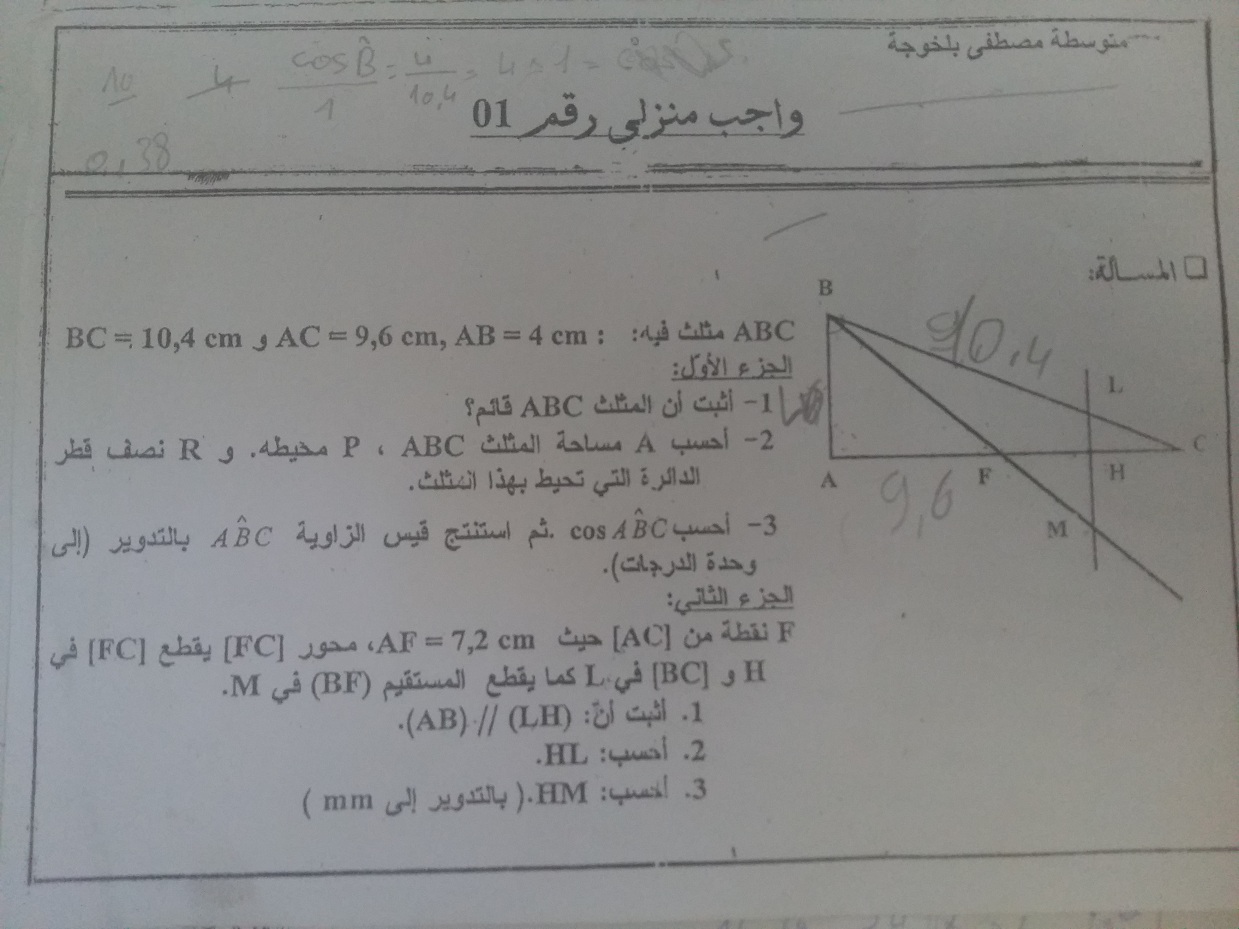 متوسطة مصطفى بلخوجة
10 4 cosB̂/1 = 4/10,4 = 4 × 1 =
واجب منزلي رقم 01
0,38
❑ المسـالة:
ABC مثلث فيه: : BC = 10,4 cm و AC = 9,6 cm, AB = 4 cm
الجزء الأوّل:
1- أثبت أن المثلث ABC قائم؟
2- أحسب A مساحة المثلث ABC ، P محيطه. و R نصف قطر
الدائرة التي تحيط بهذا المثلث.
3- أحسب cos AB̂C .ثم استنتج قيس الزاوية AB̂C بالتدوير (إلى
وحدة الدرجات).
الجزء الثاني:
F نقطة من [AC] حيث AF = 7,2 cm، محور [FC] يقطع [FC] في
H و [BC] في L كما يقطع المستقيم (BF) في M.
1. أثبت أنّ: (LH) // (AB).
2. أحسب: HL.
3. أحسب: HM.( بالتدوير إلى mm )
B
10,4
L
C
A
F
H
9,6
M